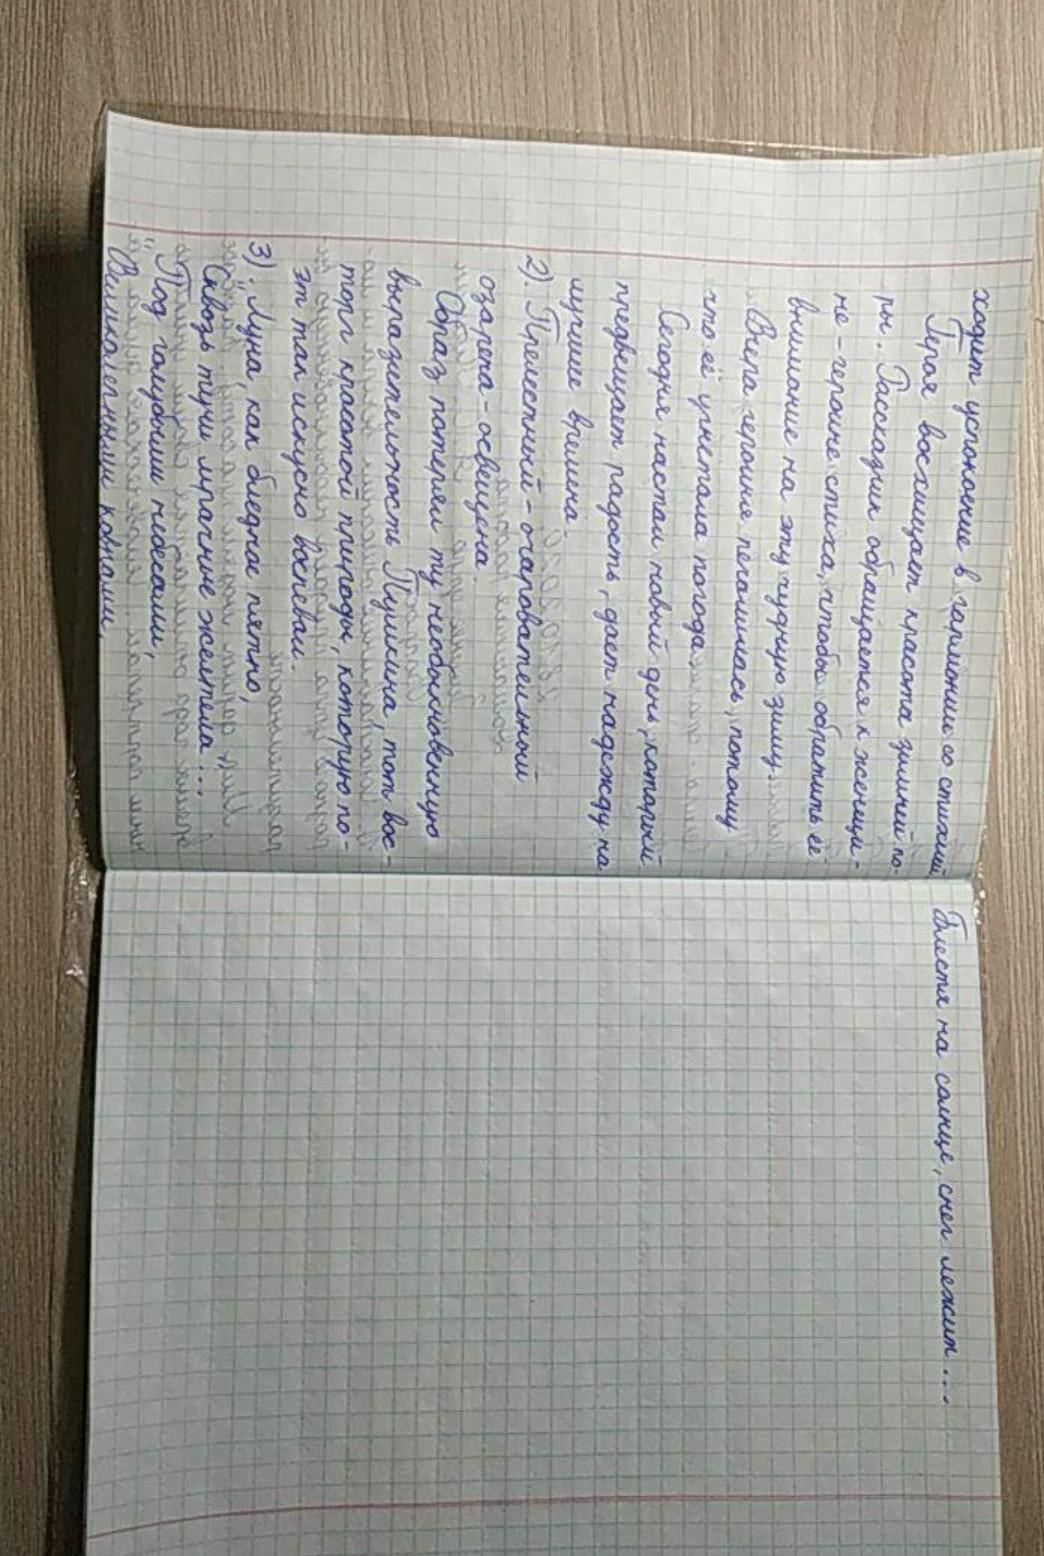 ходит успокоение в гармонии со стихией
Героя восхищает красота зимней по-
ры. Рассказчик обращается к женщи-
не - героине стиха, чтобы обратить её
внимание на эту чудную зиму.
Вчера героиня печалилась, потому
что её угнетала погода.
Сегодня настал новый день, который
предвещает радость, дает надежду на
лучшие времена.
2). Прелестный - очаровательной
озарена - освещена.
Образ потерял ту необыкновенную
выразительность Пушкина, тот вос-
торг красотой природы, которую по-
эт так искусно воспевал.
3) „Луна, как бледное пятно,
Сквозь тучи мрачные желтела...
"Под голубыми небесами,
Великолепными коврами,
Блестя на солнце, снег лежит....